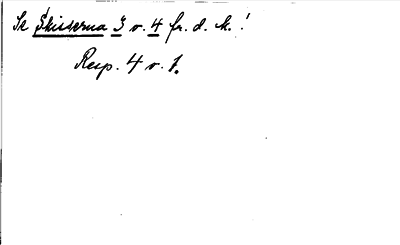 Se Skisserna 3 o. 4 fr. d. k.!
Resp. 4 o. 1.